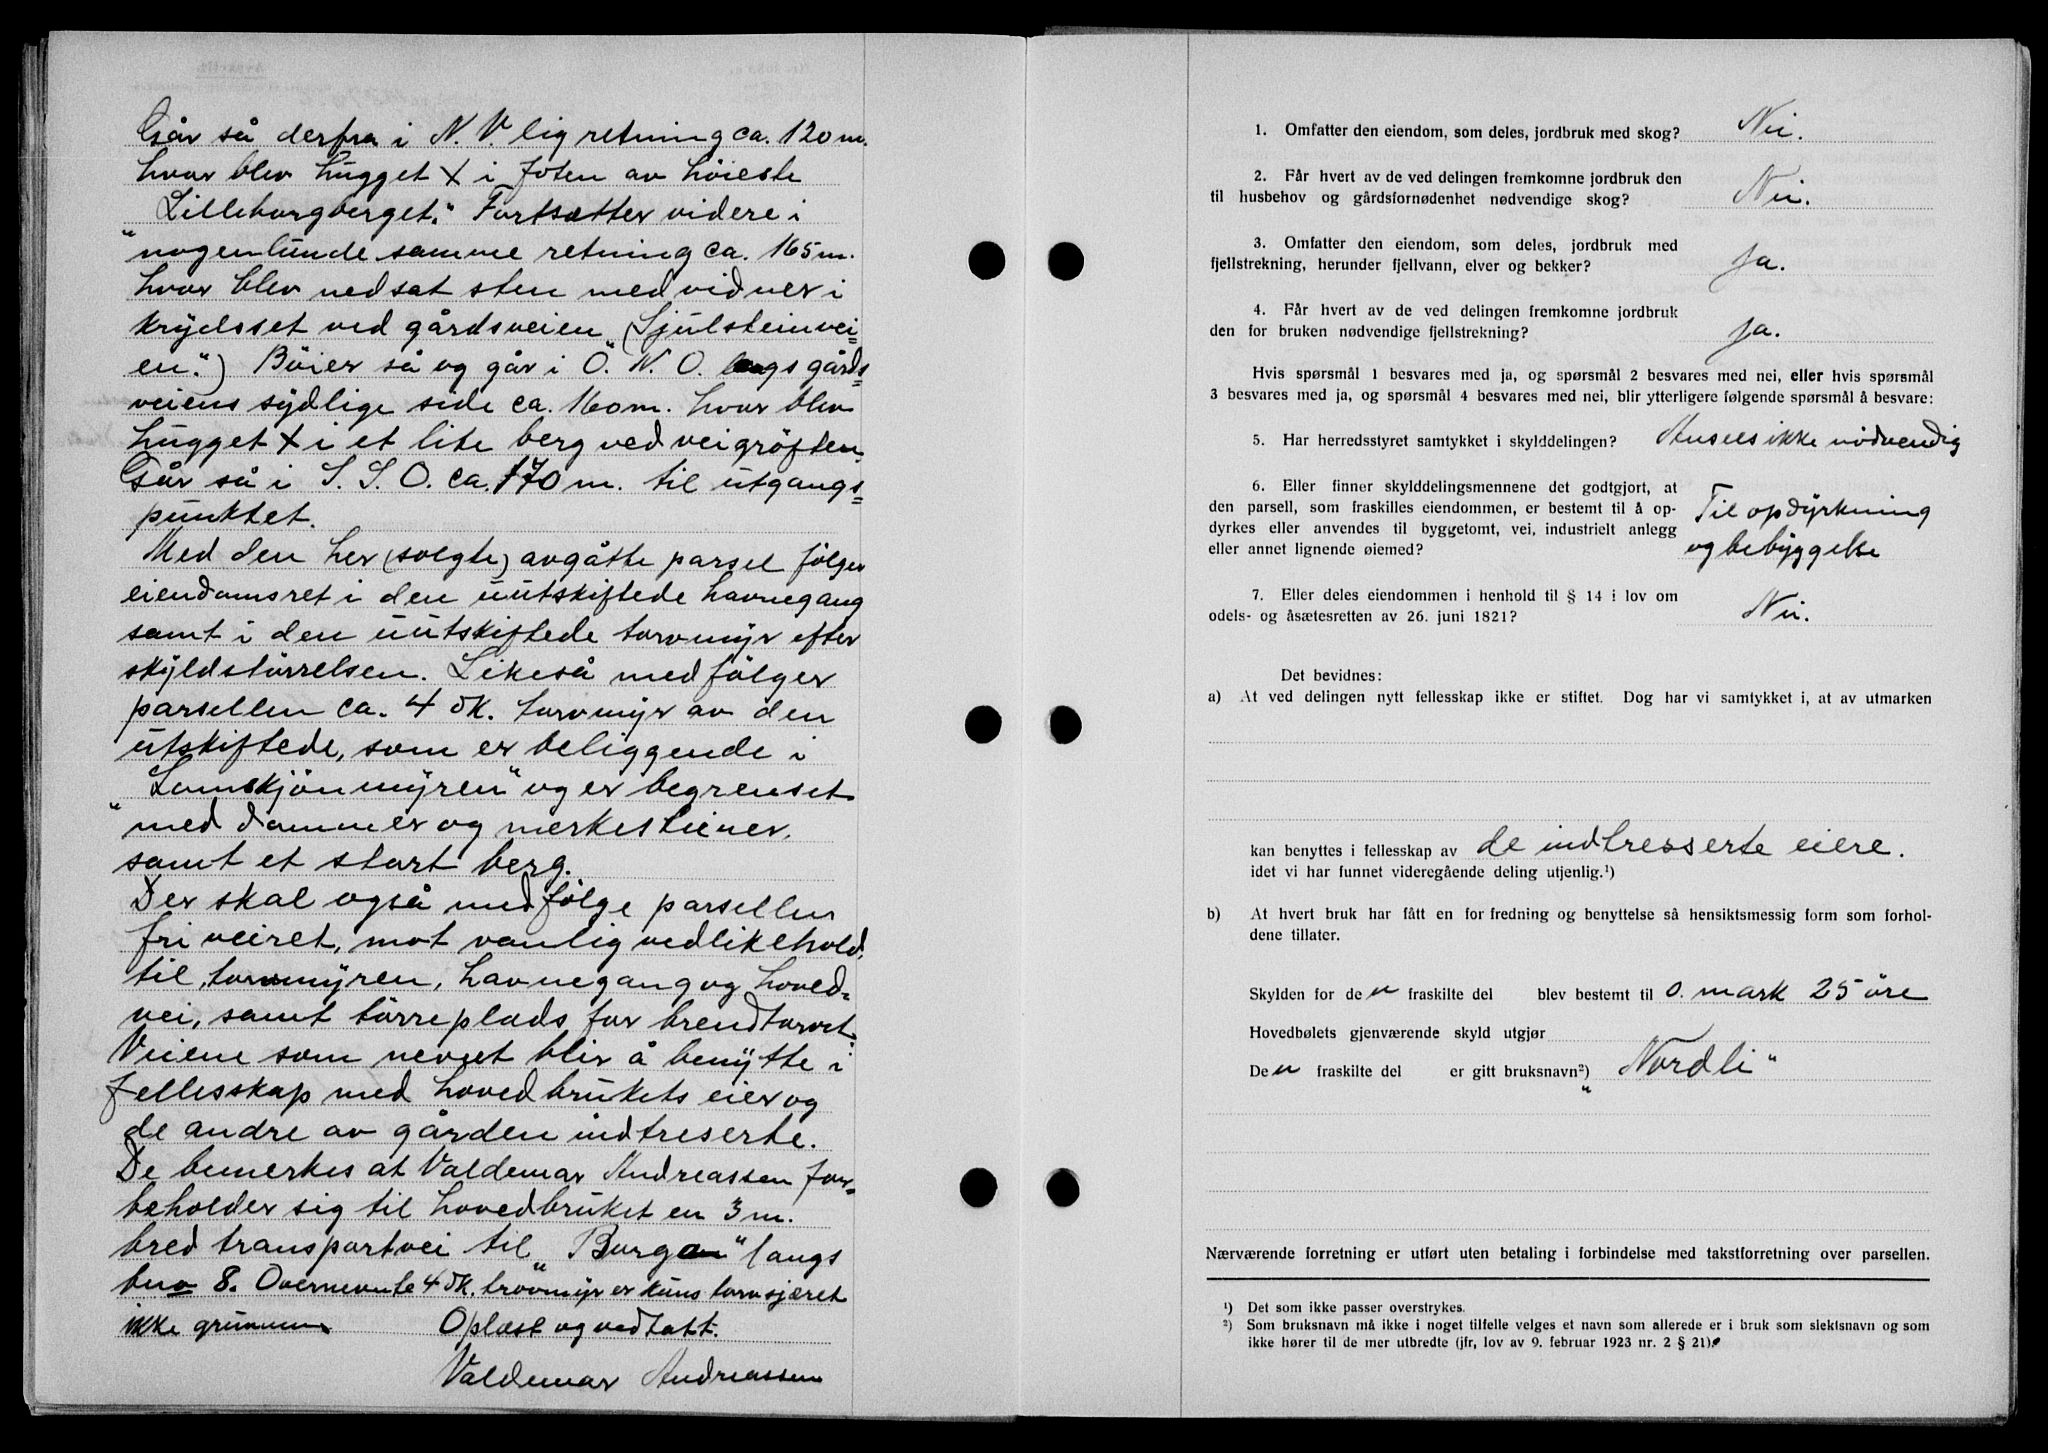 Går så derfra i N.V lig retning ca. 120 m.
hvor blev hugget X i foten av høieste
"Lilleborgberget." Fortsætter videre i
nogenlunde samme retning ca. 165 m.
hvor blev nedsat sten med vidner i
krydsset ved gårdsveien (Sjulsteinvei=
en".) Bøier så og går i O. N. O. langs gårds=
veiens sydlige side ca. 160 m. hvor blev
hugget X i et lite berg ved veigrøften.
Går så i S. S. O. ca. 170 m. til utgangs=
punktet.
Med den her (solgte) avgåtte parsel følger
eiendomsret i den uutskiftede havnegang
samt i den uutskiftede torvmyr efter
skyldstørrelsen. Likeså medfølger
parsellen ca. 4 dk. torvmyr av den
utskiftede, som er beliggende i
"Lomskjønmyren" og er begrenset
med dammer og merkesteiner,
samt et stort berg.
Der skal også medfølge parsellen
fri veiret, mot vanlig vedlikehold,
til, torvmyren, havnegang og hoved=
vei, samt tørreplads for brendtorvet.
Veiene som nevnt blir å benytte i
fellesskap med hovedbrukets eier og
de andre av gården indtreserte.
De bemerkes at Valdemar Andreassen for=
beholder sig til hovedbruket en 3 m.
bred transportvei til "Borgen" langs
bno 8. Overnevnte 4 dk. trovmyr er kuns torvskjæret
ikke grunnen Oplæst og vedtatt.
Valdemar Andreassen
1. Omfatter den eiendom, som deles, jordbruk med skog? Nei.
2. Får hvert av de ved delingen fremkomne jordbruk den
til husbehov og gårdsfornødenhet nødvendige skog? Nei.
3. Omfatter den eiendom, som deles, jordbruk med
fjellstrekning, herunder fjellvann, elver og bekker? Ja.
4. Får hvert av de ved delingen fremkomne jordbruk
den for bruken nødvendige fjellstrekning? Ja.
Hvis spørsmål 1 besvares med ja, og spørsmål 2 besvares med nei, eller hvis spørsmål
3 besvares med ja, og spørsmål 4 besvares med nei, blir ytterligere følgende spørsmål å besvare:
5. Har herredsstyret samtykket i skylddelingen? Ansees ikke nødvendig
6. Eller finner skylddelingsmennene det godtgjort, at
den parsell, som fraskilles eiendommen, er bestemt til å op-
dyrkes eller anvendes til byggetomt, vei, industrielt anlegg
eller annet lignende øiemed? Til opdyrkning
og bebyggelse
7. Eller deles eiendommen i henhold til § 14 i lov om
odels- og åsætesretten av 26. juni 1821? Nei.
Det bevidnes:
a) At ved delingen nytt fellesskap ikke er stiftet. Dog har vi samtykket i, at av utmarken
kan benyttes i fellesskap av de indtresserte eiere.
idet vi har funnet videregående deling utjenlig.¹)
b) At hvert bruk har fått en for fredning og benyttelse så hensiktsmessig form som forhol-
dene tillater.
Skylden for den fraskilte del blev bestemt til 0. mark 25 øre
Hovedbølets gjenværende skyld utgjør
Den fraskilte del er gitt bruksnavn²) "Nordli"
Nærværende forretning er utført uten betaling i forbindelse med takstforretning over parsellen.
¹) Det som ikke passer overstrykes.
²) Som bruksnavn må ikke i noget tilfelle velges et navn som allerede er i bruk som slektsnavn og som
ikke hører til de mer utbredte (jfr. lov av 9. februar 1923 nr. 2 § 21).